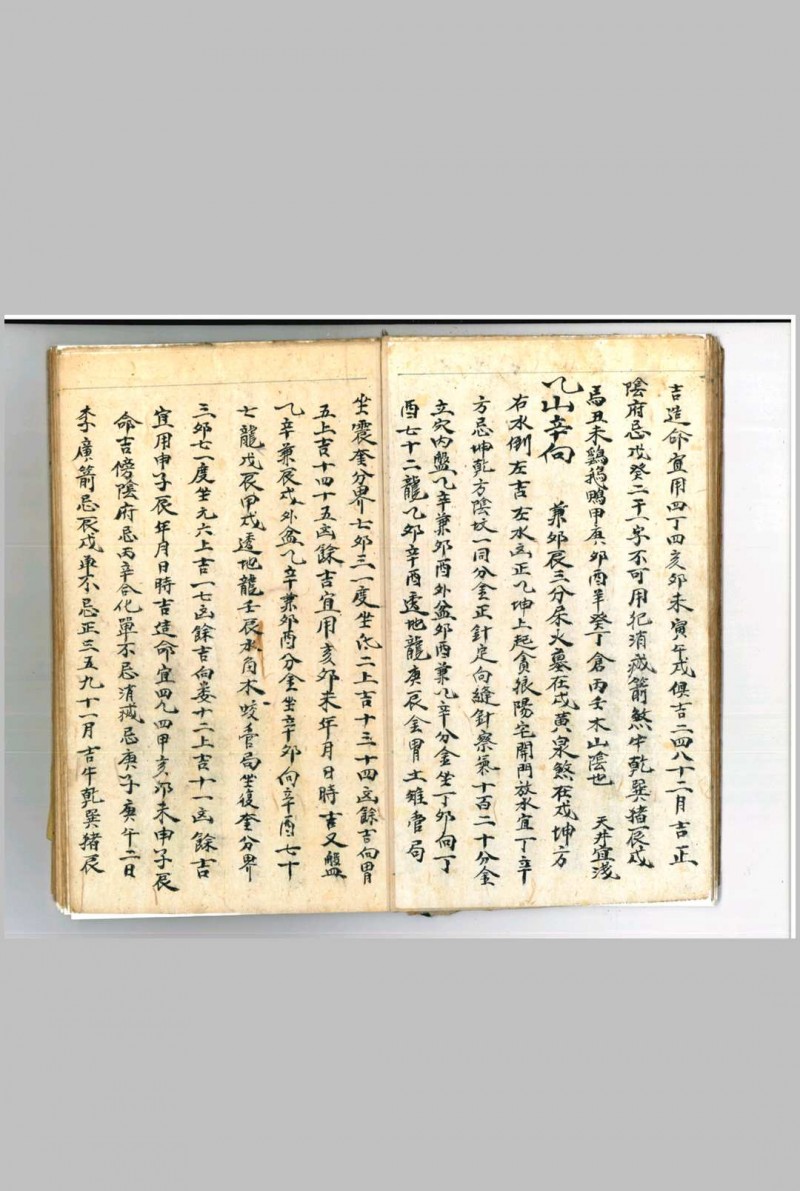 吉造命宜用四丁四亥卯未寅午戌俱吉二四八十二月吉正
陰府忌戊癸二干一字不可用犯消滅箭煞牛乾巽猪辰戌
馬丑未鷄鵝鴨甲庚卯酉羊癸丁倉丙壬木山陰也 天井宜淺
乙山辛向 兼卯辰三分屎火墓在戌黄泉煞在戍坤方
右水倒左吉左水凶正乙坤上起貪狼陽宅開門放水宜丁辛
方忌坤乾方陰坟一同分金正針定向縫針察氣十百二十分金
立穴内盤乙辛兼卯酉外盆卯酉兼乙辛分金坐丁卯向丁
酉七十二龍乙卯辛酉透地龍庚辰金胃土雉管局
坐震奎分界七卯三一度坐氐二上吉十三十四凶餘吉向胃
五上吉十四十五凶餘吉宜用亥卯未年月日時吉又盤
乙辛兼辰戌外盆乙辛兼卯酉分金坐辛卯向辛酉七十
七龍戊辰甲戌透地龍壬辰水角木蛟管局坐復奎分界
三卯七一度坐亢六上吉一七凶餘吉向婁十二上吉十一凶餘吉
宜用申子辰年月日時吉造命宜四乙四甲亥卯未申子辰
命吉傍陰府忌丙辛合化單不忌消滅忌庚子庚午二日
李廣箭忌辰戌單不忌正三五九十一月吉牛乾巽猪辰